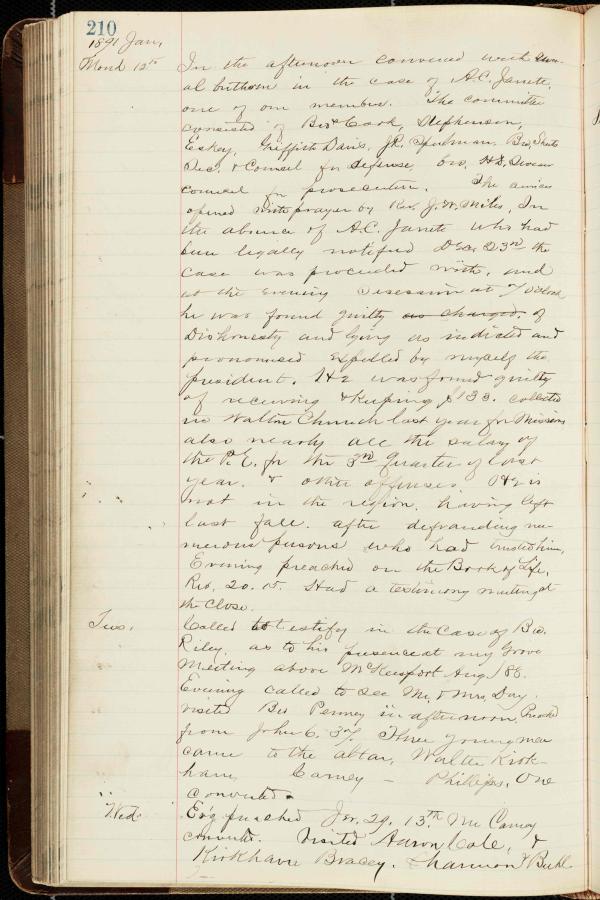 210
1891 Jan,
Mond 12th In the afternoon convened with sever-
al brethren in the case of A.C. Jarrett,
one of our members. The committee
consisted of Bros Cook, Stephenson,
Eskey, Griffith Davis, JR. Speelman. Bro,
Sec. & Council for defense, Bro. H.S.
council for prosecution. The
opened with prayer by Rev. J. W. Miles, In
the absence of A.C. Jarrett who had
been legally notified Dec 23rd the
case was proceeded with, and
at the evening session at 7 Oclock
he was found guilty as charged. of
Dishonesty and lying as indicted and
pronounced expelled by myself the
president. He was found guilty
of receiving & keeping $133. collected
in Walton Church last year for Missions
also nearly all the salary of
the P.E. for the 3rd Quarter of last
year. & other offenses. He is
not in the region, having left
last fall. after defrauding nu-
merous persons who had trusted him,
Evening preached on the Book of Life,
Rev. 20. 15. Had a testimony meeting at
the close.
Tues. Called to testify in the Case of Bro.
Riley, as to his presence at my Grove
Meeting above McKeesport Aug. 88.
Evening called to see Mr. & Mrs Day.
visited Bro Penney in afternoon, Preached
from John 6. 37. Three young men
came to the altar, Walter Kirk-
ham, Carney – Phillips, One
converted.
Wed. Ev'g preached Jer. 29. 13th Mr Carney
converted. Visited Aaron Cole, &
Kirkham Bracey. Shannon & Buhl